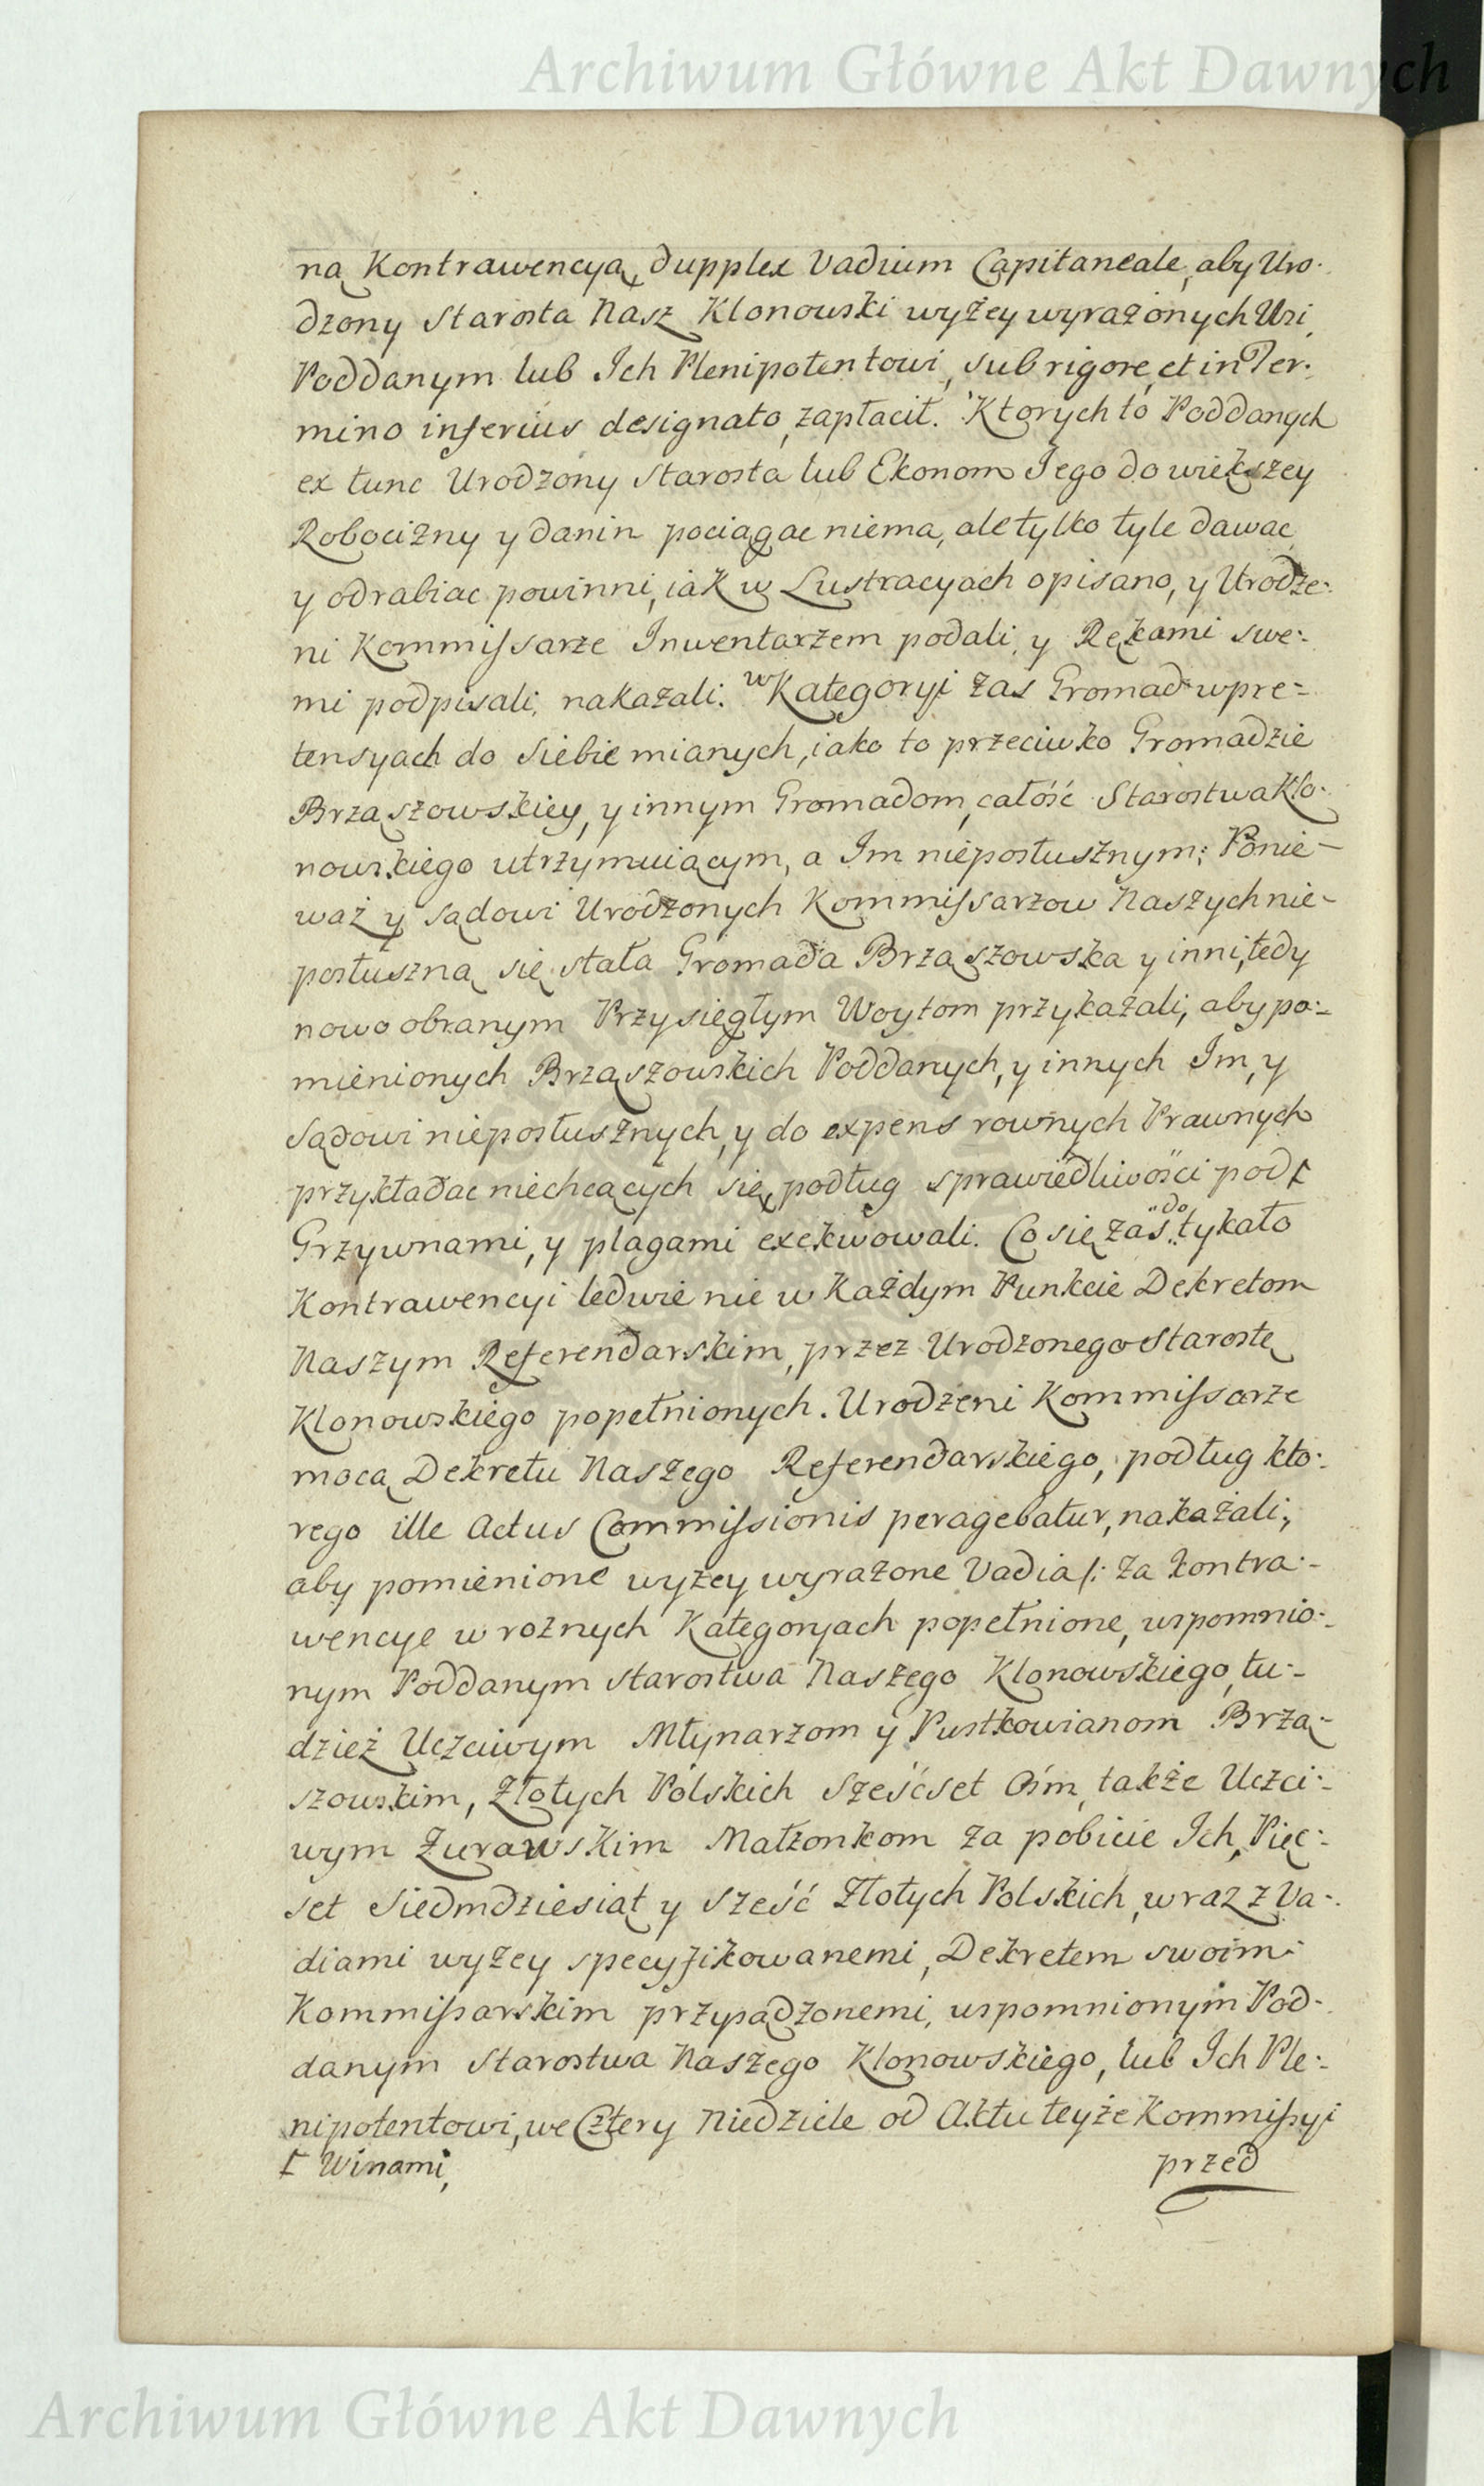 Archiwum Główne Akt Dawnych
ną Kontrawencyą, dupplex Vadium Capitaneale, aby Uro-
dzony Starosta Nasz Klonowski wyżey wyrażonych Wsi
Poddanym lub Ich Plenipotentowi, sub rigore, et in Ter-
mino inferius designato, zapłacił. Ktorych to Poddanych
ex tunc Urodzony Starosta lub Ekonom Iego do większey
Robocizny y danin pociągac niema, ale tylko tyle dawac
y odrabiac powinni, iak w Lustracyach opisano, y Urodze-
ni Kommissarze Inwentarzem podali, y Rękami swe-
mi podpisali, nakazali. w Kategoryi zas Gromad w pre-
tensyach do siebie mianych, iako to przeciwko Gromadzie
Brząszowskiey, y innym Gromadom, całość Starostwa Klo-
nowskiego utrzymuiącym, a Im nieposłusznym; Ponie-
waż y Sądowi Urodzonych Kommissarzow Naszych nie-
posłuszną się stała Gromada Brząszowska y inni, tedy
nowo obranym Przysięgłym Woytom przykazali, aby po-
mienionych Brząszowskich Poddanych, y innych Im, y
Sądowi nieposłusznych, y do expens rownych Prawnych
przykładac niechcących się, podług sprawiedliwości pod Ɫ
Grzywnami, y plagami exekwowali. Co się zaś do tykało
Kontrawencyi ledwie nie w każdym Punkcie Dekretom
Naszym Referendarskim, przez Urodzonego Starostę
Klonowskiego popełnionych. Urodzeni Kommissarze
mocą Dekretu Naszego Referendarskiego, podług kto-
rego ille Actus Commissionis peragebatur, nakazali;
aby pomienione wyżey wyrażone Vadia /: za kontra-
wencye w roznych Kategoryach popełnione, wspomnio-
nym Poddanym Starostwa Naszego Klonowskiego, tu-
dzież Uczciwym Młynarzom y Pustkowianom Brzą-
szowskim, Złotych Polskich Sześćset Ośm, także Uczci-
wym Żurawskim Małżonkom za pobicie Ich, Pięc-
set siedmdziesiąt y sześć Złotych Polskich, wraz z Va-
diami wyżey specyfikowanemi, Dekretem swoim
Kommissarskim przysądzonemi, wspomnionym Pod-
danym Starostwa Naszego Klonowskiego, lub Ich Ple-
nipotentowi, we Cztery Niedziele od Aktu teyże Kommissyi
Ɫ Winami,
przed
Archiwum Główne Akt Dawnych